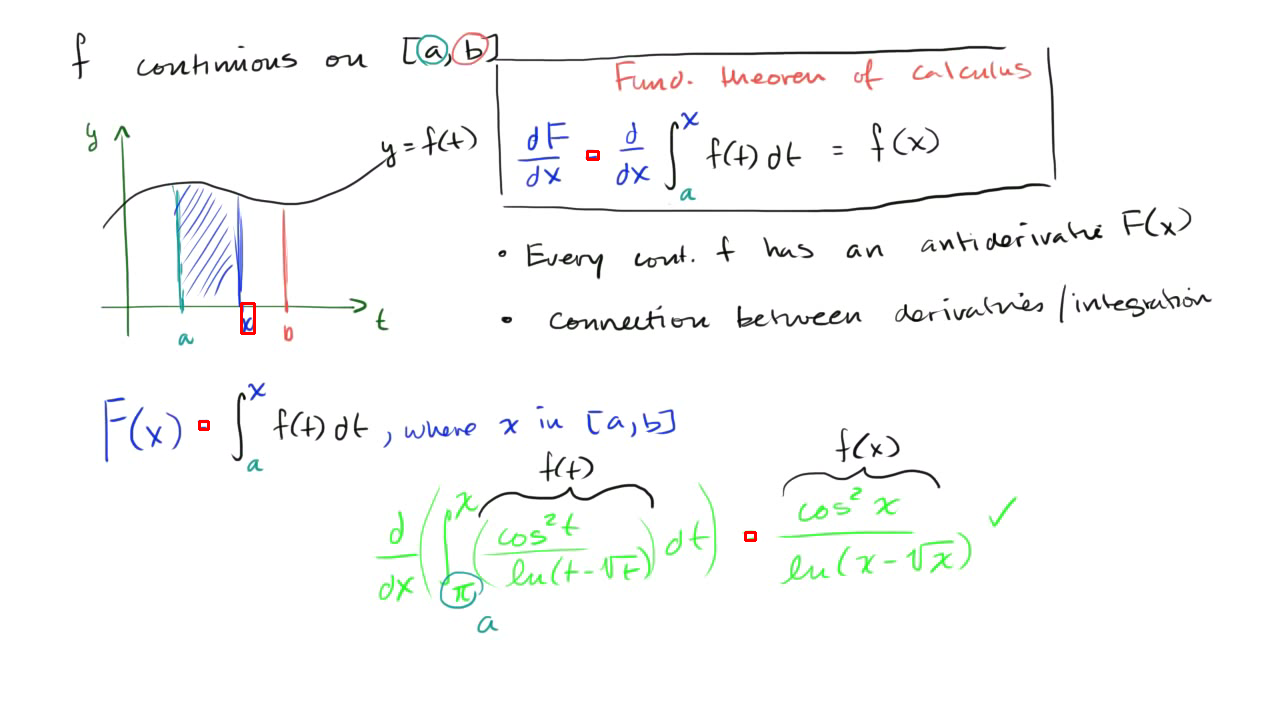 f continuous on [a, b]
Fund. theorem of calculus
dF/dx = d/dx ∫_a^x f(t) dt = f(x)
y
y = f(t)
a
x
b
t
• Every cont. f has an antiderivative F(x)
• connection between derivatives / integration
F(x) = ∫_a^x f(t) dt, where x in [a, b]
f(t)
f(x)
d/dx (∫_π^x (cos²t / ln(t-√t)) dt) = cos²x / ln(x-√x) ✓
a